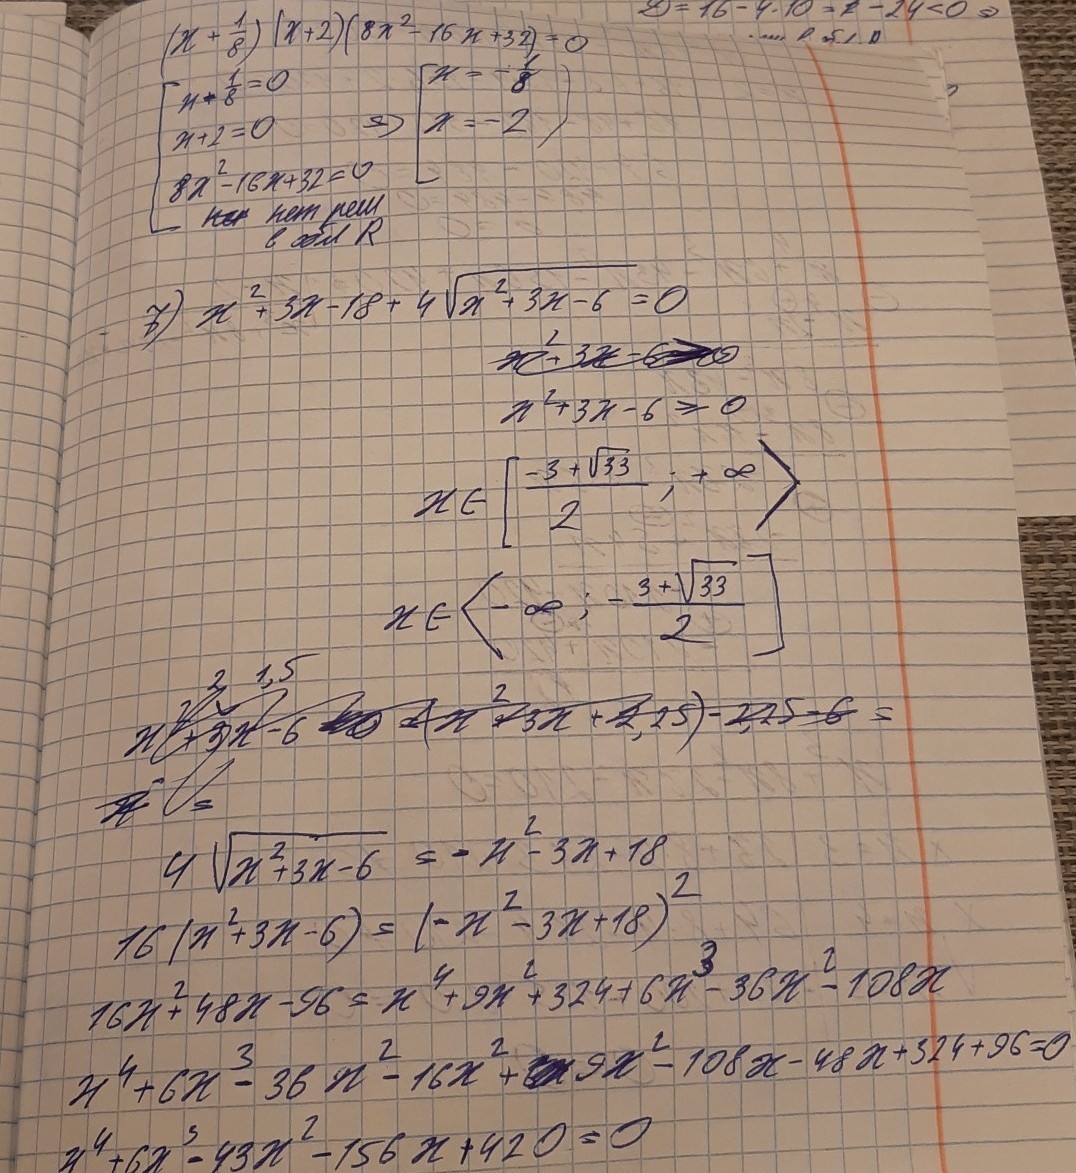 D = 16 - 4·10 = - 24 < 0 ⇒
(x + 1/8)(x+2)(8x² - 16x + 32) = 0
[ x + 1/8 = 0
x + 2 = 0 ⇒ [ x = -1/8
x = -2
8x² - 16x + 32 = 0
нет реш
в обл R
7) x² + 3x - 18 + 4√(x² + 3x - 6) = 0
x² + 3x - 6 ≥ 0
x² + 3x - 6 ≥ 0
x ∈ [ (-3 + √33)/2 ; + ∞ >
x ∈ < - ∞ ; - (3 + √33)/2 ]
x² + 3x - 6 = (x² + 3x + 2,25) - 2,25 - 6 =
4√(x² + 3x - 6) = - x² - 3x + 18
16(x² + 3x - 6) = (-x² - 3x + 18)²
16x² + 48x - 96 = x⁴ + 9x² + 324 + 6x³ - 36x² - 108x
x⁴ + 6x³ - 36x² - 16x² + 9x² - 108x - 48x + 324 + 96 = 0
x⁴ + 6x³ - 43x² - 156x + 420 = 0